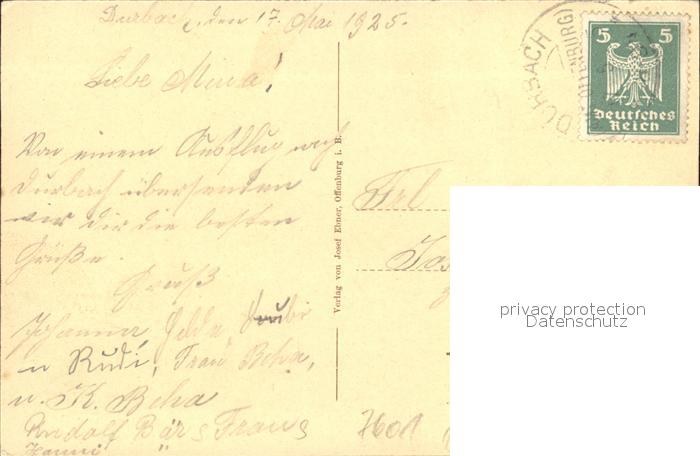 Durbach, den 17. Mai 1925.
Liebe Mina!
Von einem Ausflug nach
Durbach übersenden
wir dir die besten
Grüße.
Gruß
Johanna
u Rudi, Frau Beha,
u. K. Beha
Rudolf Bär Franz
Hanni
Verlag von Josef Ebner, Offenburg i. B.
DURBACH
5 5
Deutsches
Reich
Frl
7601
privacy protection
Datenschutz